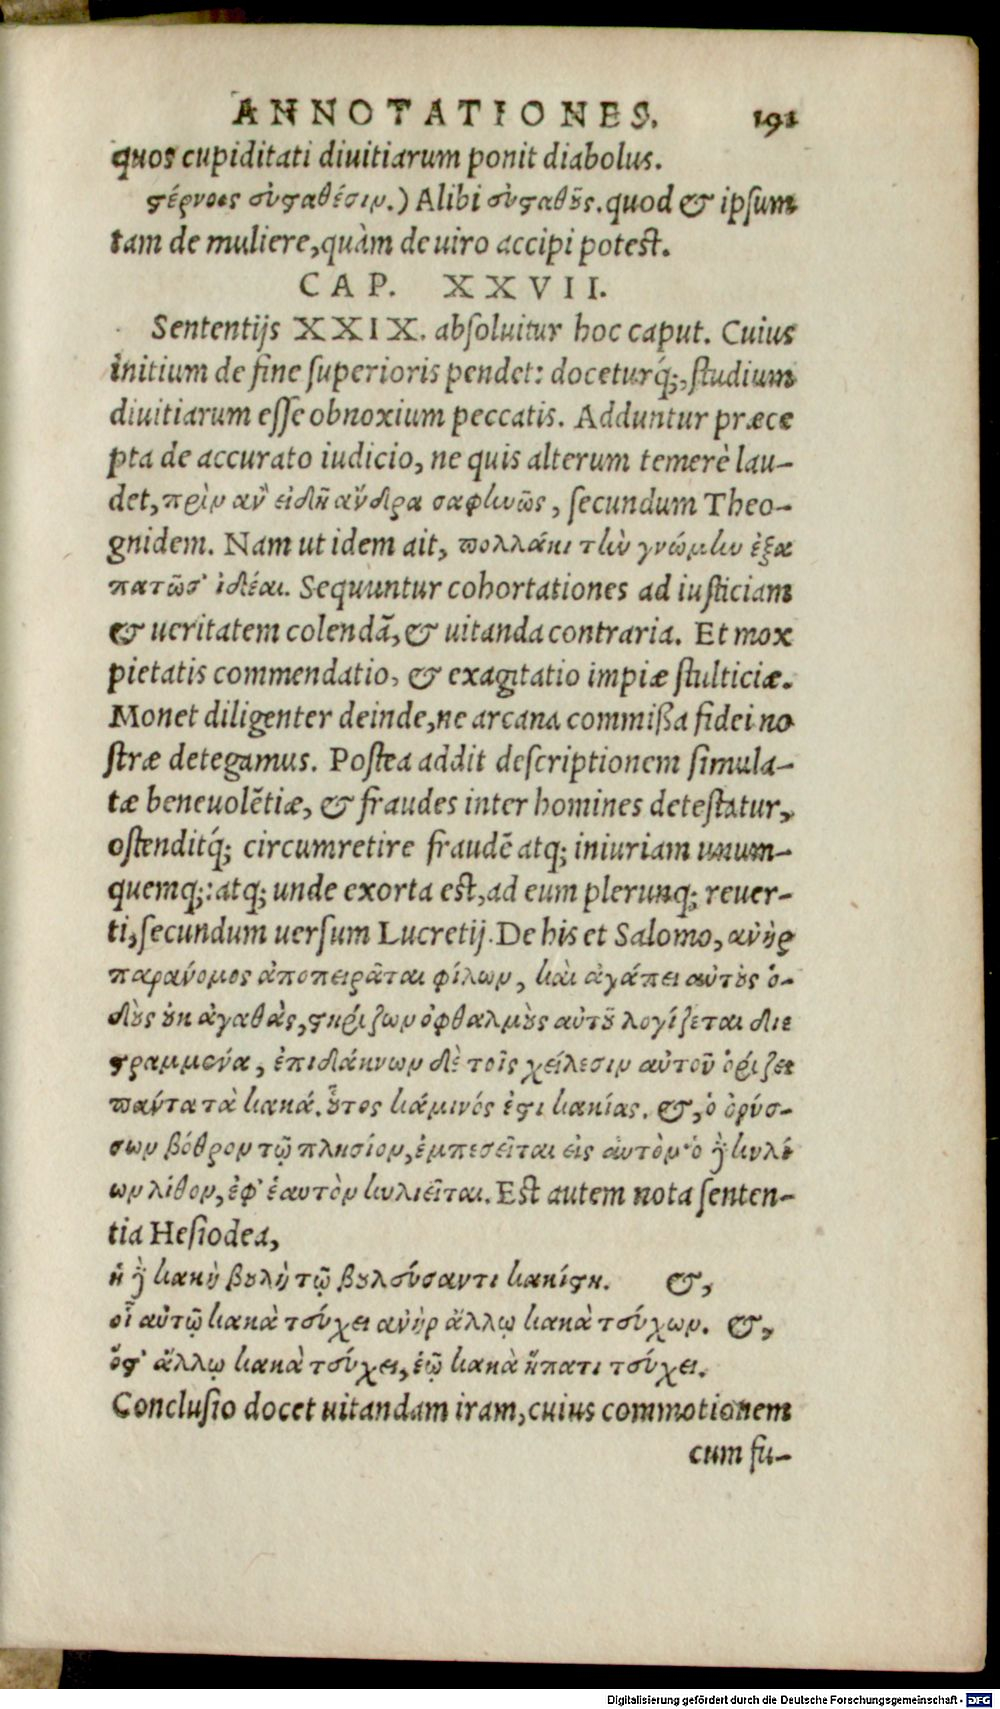 ANNOTATIONES. 191
quos cupiditati diuitiarum ponit diabolus.
στέρνοις εὐσταθέσιν.) Alibi εὐσταθοῦς. quod & ipsum
tam de muliere, quàm de uiro accipi potest.
CAP. XXVII.
Sententijs XXIX. absoluitur hoc caput. Cuius
initium de fine superioris pendet: doceturq́;, studium
diuitiarum esse obnoxium peccatis. Adduntur præce
pta de accurato iudicio, ne quis alterum temerè lau-
det, πρὶν ἂν εἰδῇ ἄνδρα σαφηνῶς, secundum Theo-
gnidem. Nam ut idem ait, πολλάκι τὴν γνώμην ἐξα
πατῶσ' ἰδέαι. Sequuntur cohortationes ad iusticiam
& ueritatem colendā, & uitanda contraria. Et mox
pietatis commendatio, & exagitatio impiæ stulticiæ.
Monet diligenter deinde, ne arcana commissa fidei no
stræ detegamus. Postea addit descriptionem simula-
tæ beneuolētiæ, & fraudes inter homines detestatur,
ostenditq́; circumretire fraudē atq; iniuriam unum-
quemq;: atq; unde exorta est, ad eum plerunq; reuer-
ti, secundum uersum Lucretij. De his et Salomo, ἀνὴρ
παράνομος ἀποπειρᾶται φίλων, καὶ ἀγάπει αὐτοὺς ὁ-
δοὺς οὐκ ἀγαθὰς, στηρίζων ὀφθαλμοὺς αὐτοῦ λογίζεται διε
στραμμένα, ἐπιδάκνων δὲ τοῖς χείλεσιν αὐτοῦ ὁρίζει
πάντα τὰ κακά. οὗτος κάμινός ἐστι κακίας. &, ὁ ὀρύσ-
σων βόθρον τῷ πλησίον, ἐμπεσεῖται εἰς αὐτὸν· ὁ δὲ κυλί
ων λίθον, ἐφ' ἑαυτὸν κυλιεῖται. Est autem nota senten-
tia Hesiodea,
ἡ δὲ κακὴ βουλὴ τῷ βουλεύσαντι κακίστη. &,
οἷ αὐτῷ κακὰ τεύχει ἀνὴρ ἄλλῳ κακὰ τεύχων. &,
ὅς' ἄλλῳ κακὰ τεύχει, ἑῷ κακὰ ἥπατι τεύχει.
Conclusio docet uitandam iram, cuius commotionem
cum fu-
Digitalisierung gefördert durch die Deutsche Forschungsgemeinschaft - DFG